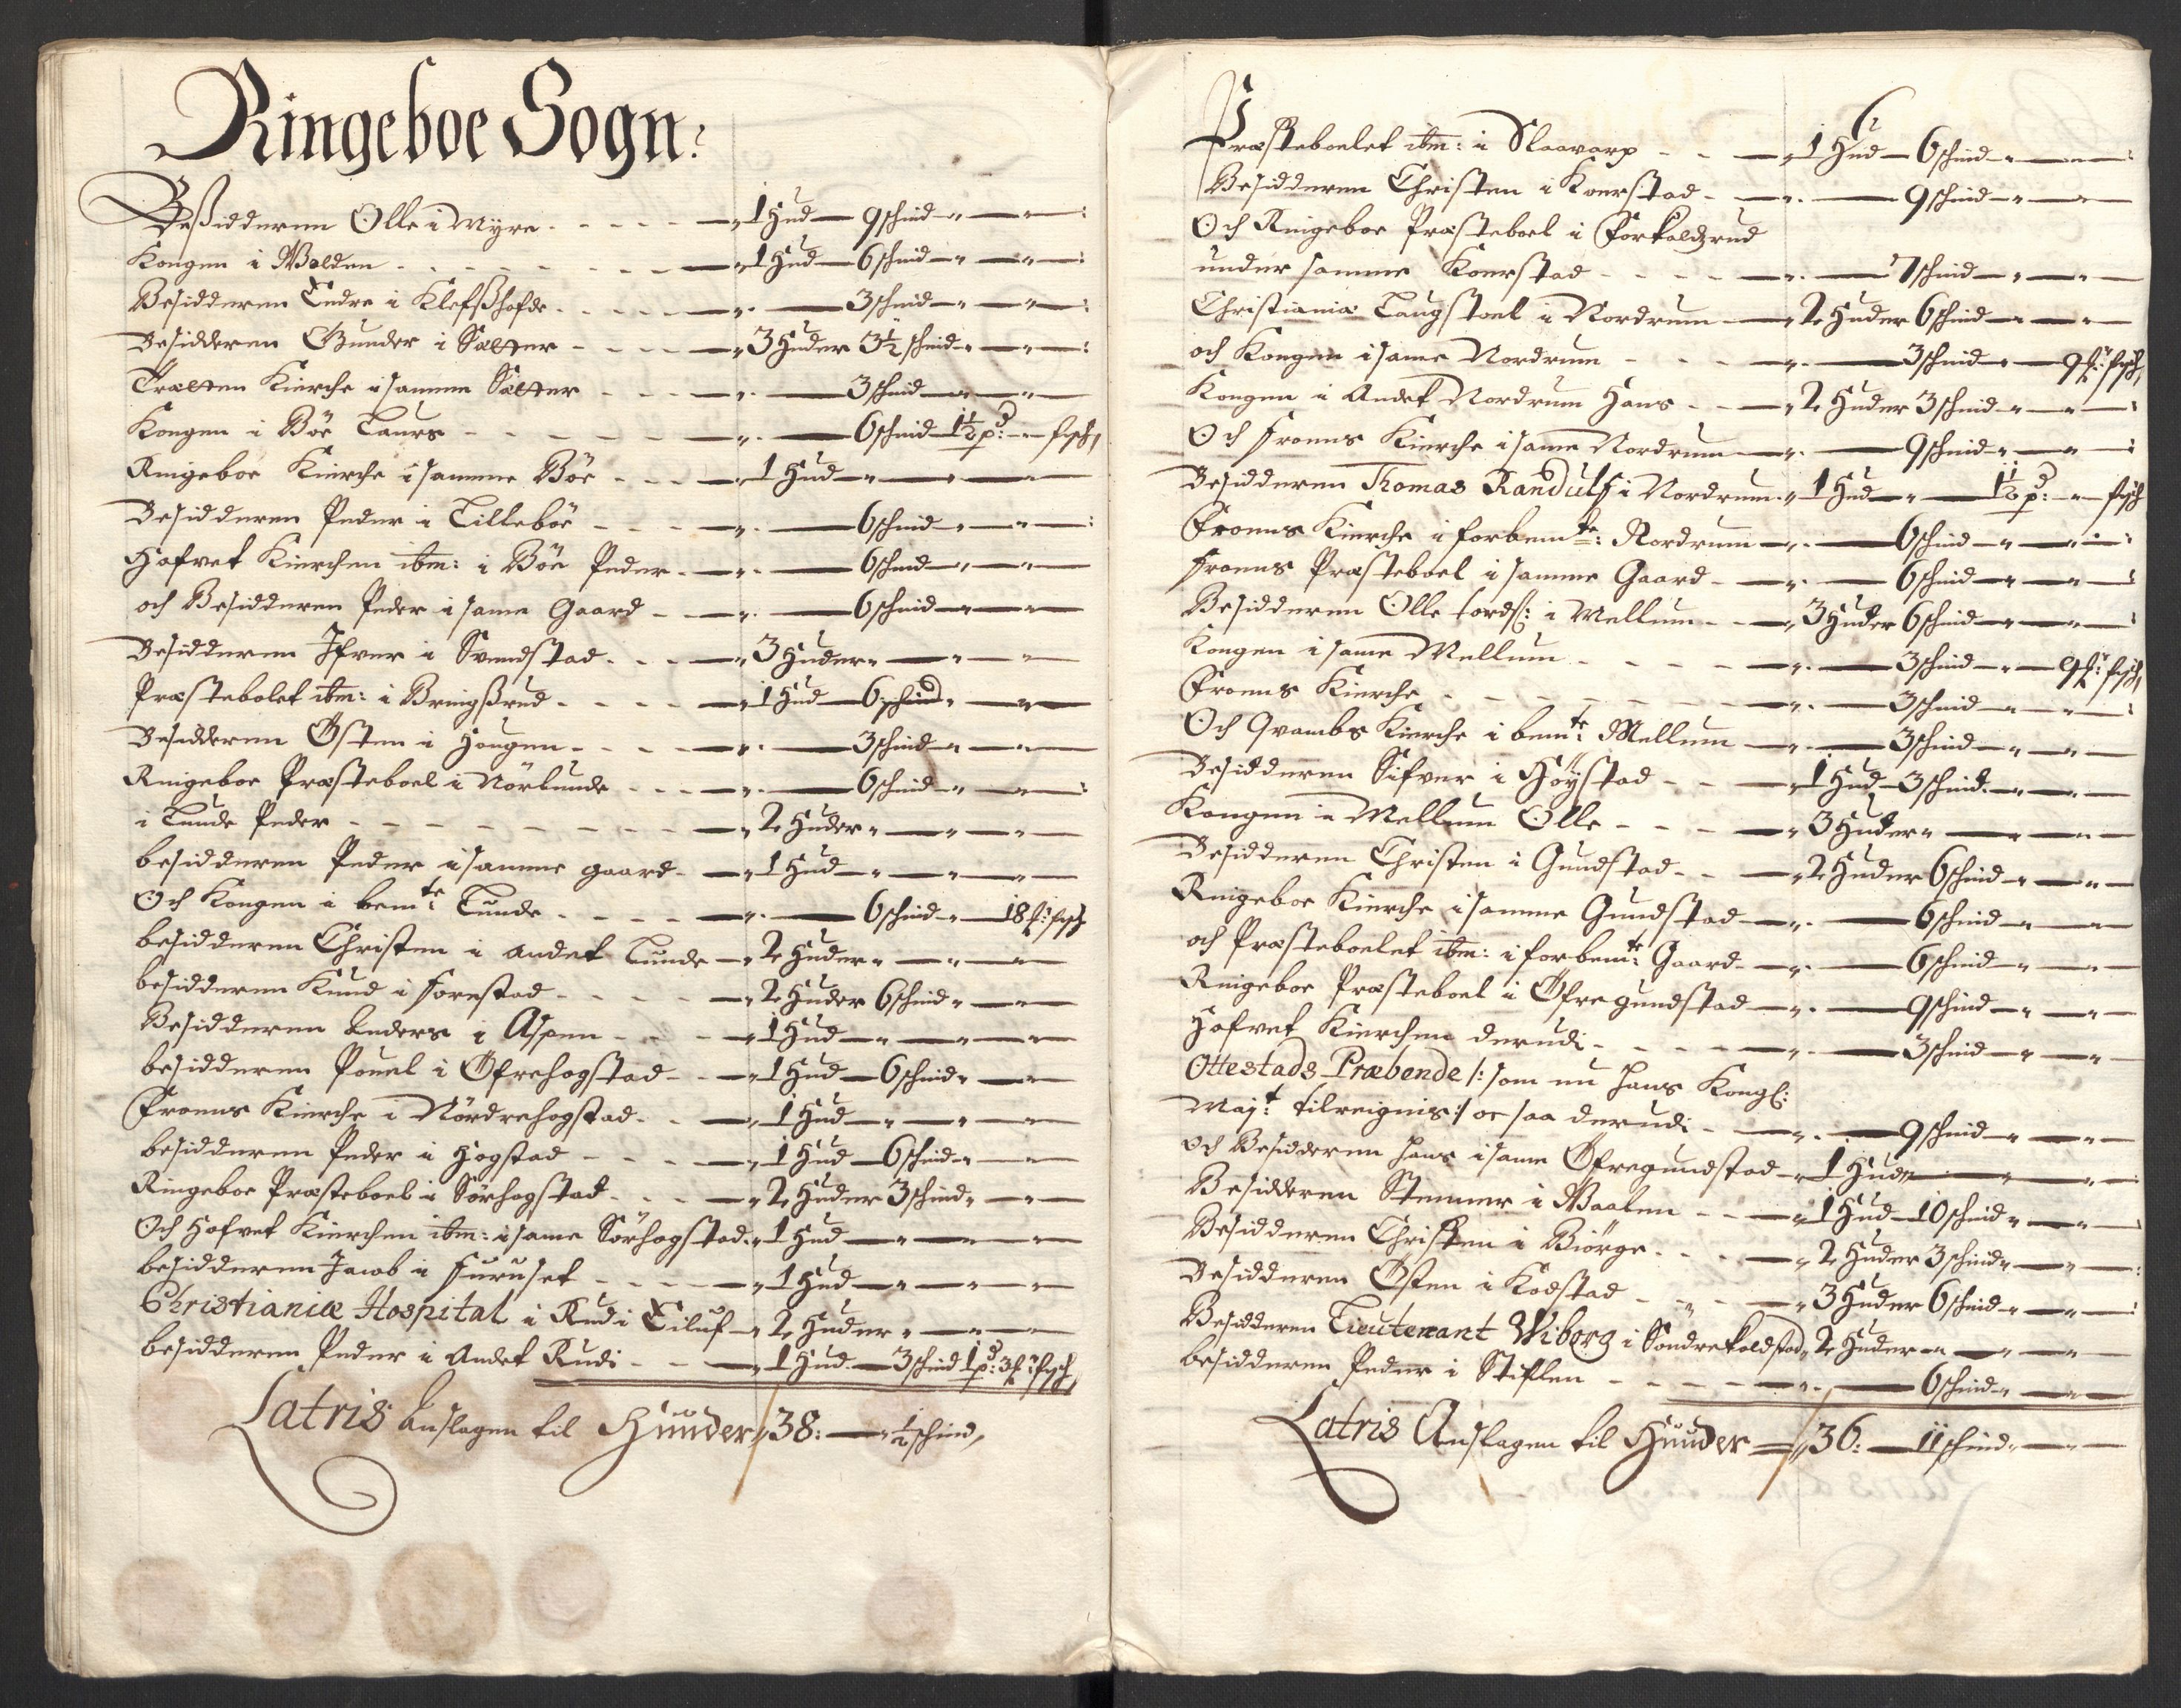 Ringeboe Sogn:
Beßidderen Olle i Myre - - - - - 1 Hud 9 schind
Kongen i Wolden - - - - - 1 Hud 6 schind
Besidderen Endre i Klefßhofde - - - - 3 schind
Besidderen Gunder i Sætter - - - - 3 Huder 3½ schind
Trætten Kierche i samme Sætter - - - 3 schind
Kongen i Böe Laurs - - - - 6 schind 1½ pd: fisch,
Ringeboe Kierche i samme Böe - - - 1 Hud
Besidderen Peder i Lilleböe - - - - 6 schind
Hafvet Kierchen ibm: i Böe Peder - 6 schind
och Besidderen Peder i same Gaard - 6 schind
Besidderen Ifver i Svendstad - - - 3 Huder
Præstebolet ibm: i Bringßrud - - - - 1 Hud 6 schind
Besidderen Östen i Hougen - - - - 3 schind
Ringeboe Præsteboel i Nörlunde - - - 6 schind
i Lunde Peder - - - - - - - - 2 Huder
besidderen Peder i samme gaard - 1 Hud
Och Kongen i bemte: Lunde - - - - 6 schind 18 f: fisch
besidderen Christen i andet Lunde 2 Huder
besidderen Knud i Forestad - - - - 2 Huder 6 schind
Besidderen Anders i Aspen - - - 1 Hud
besidderen Pouel i Öfrehogstad - - 1 Hud 6 schind
Froens Kierche i Nördrehogstad - - 1 Hud
besidderen Peder i Hogstad - - - - 1 Hud 6 schind
Ringeboe Præsteboel i Sörhogstad - - - 2 Huder 3 schind
Och Hafvet Kierchen ibm: i same Sörhogstad 1 Hud
besidderen Jacob i Furuset - - - - 1 Hud
Christianiæ Hospital i Rudi Eiluf 2 Huder
besidderen Peder i Andet Rudi - - 1 Hud 3 schind 1 pd: 3 f: fisch,
Latris Anslagen til Hünder 38: ½ schind,
6
Præsteboelet ibm: i Slaavarp - - 1 Hud 6 schind
Besidderen Christen i Koerstad - 9 schind
Och Ringeboe Præsteboel i Forkaldzrud
under samme Koerstad - - - - 7 schind
Christianiæ Laugstoel i Nordrum 2 Huder 6 schind
och Kongen i same Nordrum - - - 3 schind 9 f: fisch,
Kongen i Andet Nordrum Hans - - 2 Huder 3 schind
Och Froens Kierche i same Nordrum 9 schind
Besidderen Thomas Randulf i Nordrum 1 Hud 1½ pd: fisch
Froens Kierche i forbemte: Nordrum 6 schind
Froens Præsteboel i samme Gaard - 6 schind
Besidderen Olle tordß: i Mellum - - 3 Huder 6 schind
Kongen i same Mellum - - - - 3 schind 9 f: fisch,
Froens Kierche - - - - - - 3 schind
Och Qvambs Kierche i bemte: Mellum 3 schind
Besidderen Sifver i Höystad - - 1 Hud 3 schind
Kongen i Mellum Olle - - - 3 Huder
Besidderen Christen i Gundstad - - 2 Huder 6 schind
Ringeboe Kierche i samme Gundstad 6 schind
och Præsteboelet ibm: i forbemte: Gaard - 6 schind
Ringeboe Præsteboel i Öfregundstad 9 schind
Hafvet Kierchen derudi - - - - 3 schind
Ottestads Præbende /: som nu Hans Kongl:
Majt: tilreignis :/ oc saa derudi - - 9 schind
och Besidderen Hans i same Öfregundstad 1 Hud
Besidderen Stenner i Waalen - - 1 Hud 10 schind
Besidderen Christen i Biörge - - - 2 Huder 3 schind
Besidderen Östen i Kodstad - - - 3 Huder 6 schind
Besidderen Lieutenant Wiborg i Söndrekoldstad 2 Huder
besidderen Peder i Stiflen - - - - - 6 schind
Latris Anslagen til Hünder 36: 11 schind